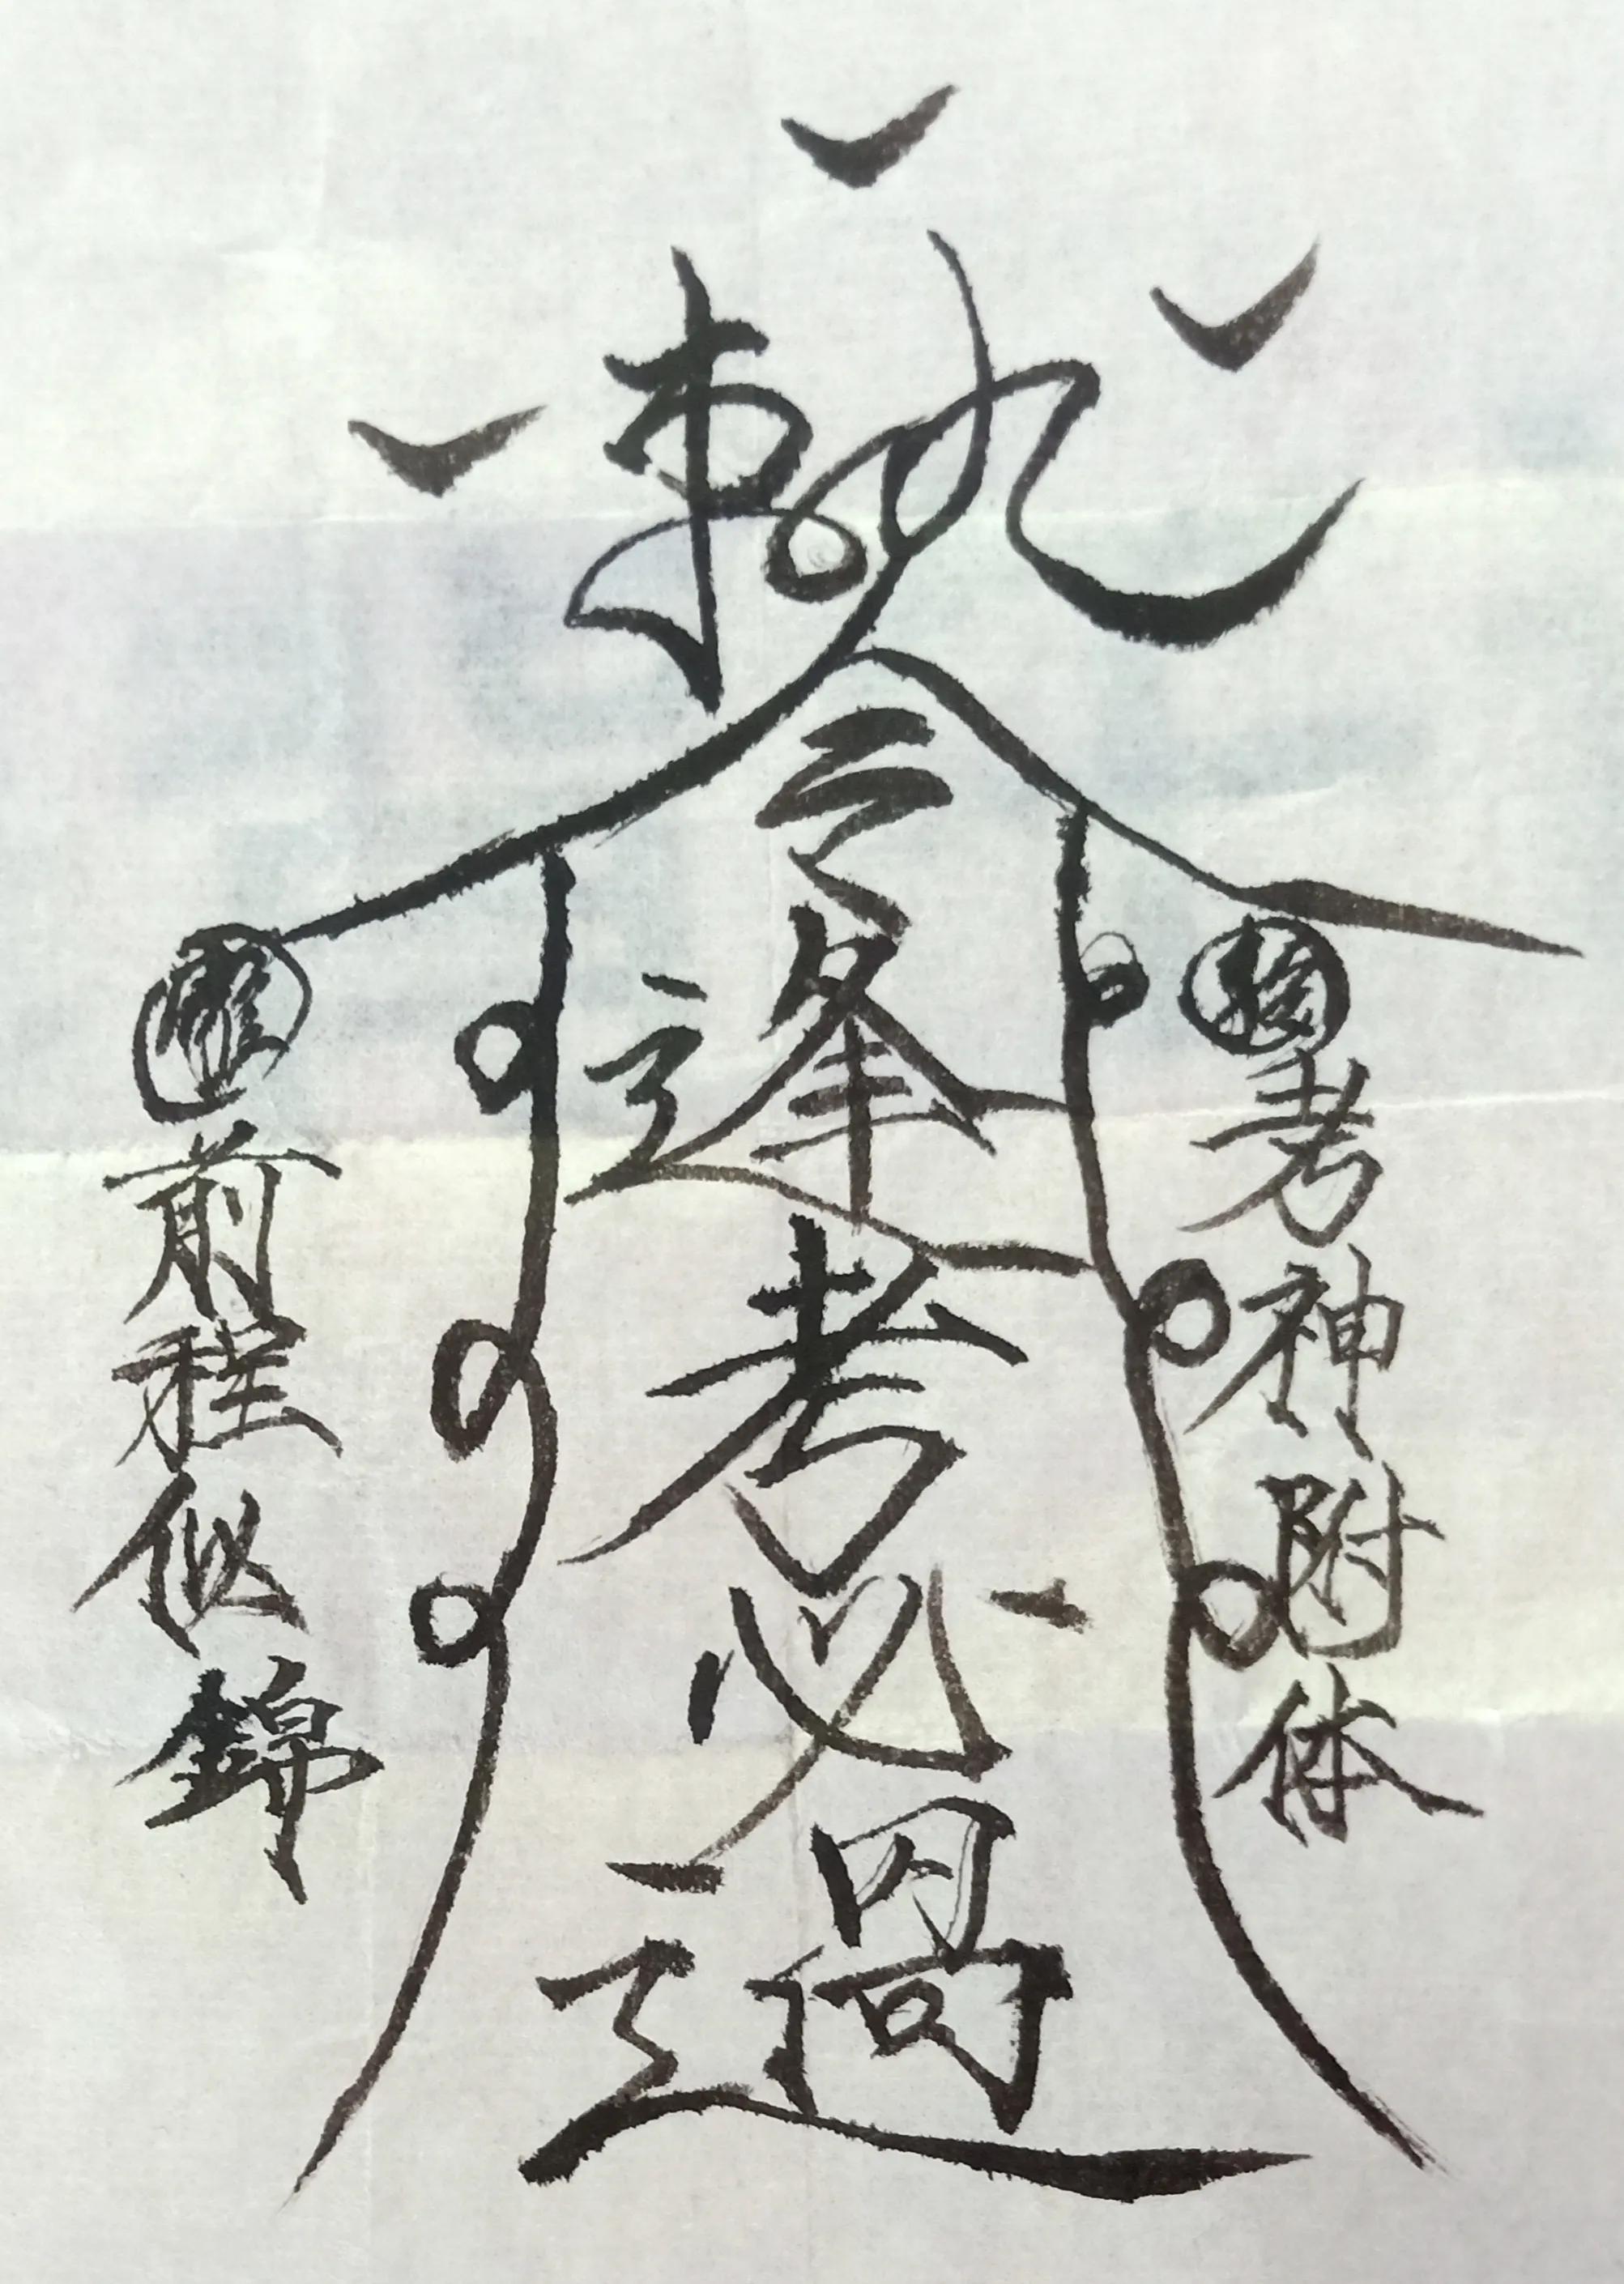 敕令
逢考必過
考神附体
前程似錦